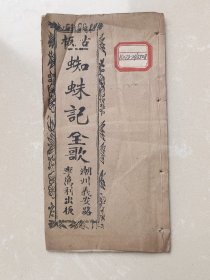 古板
蜘蛛記全歌
潮州義安路
李萬利出板